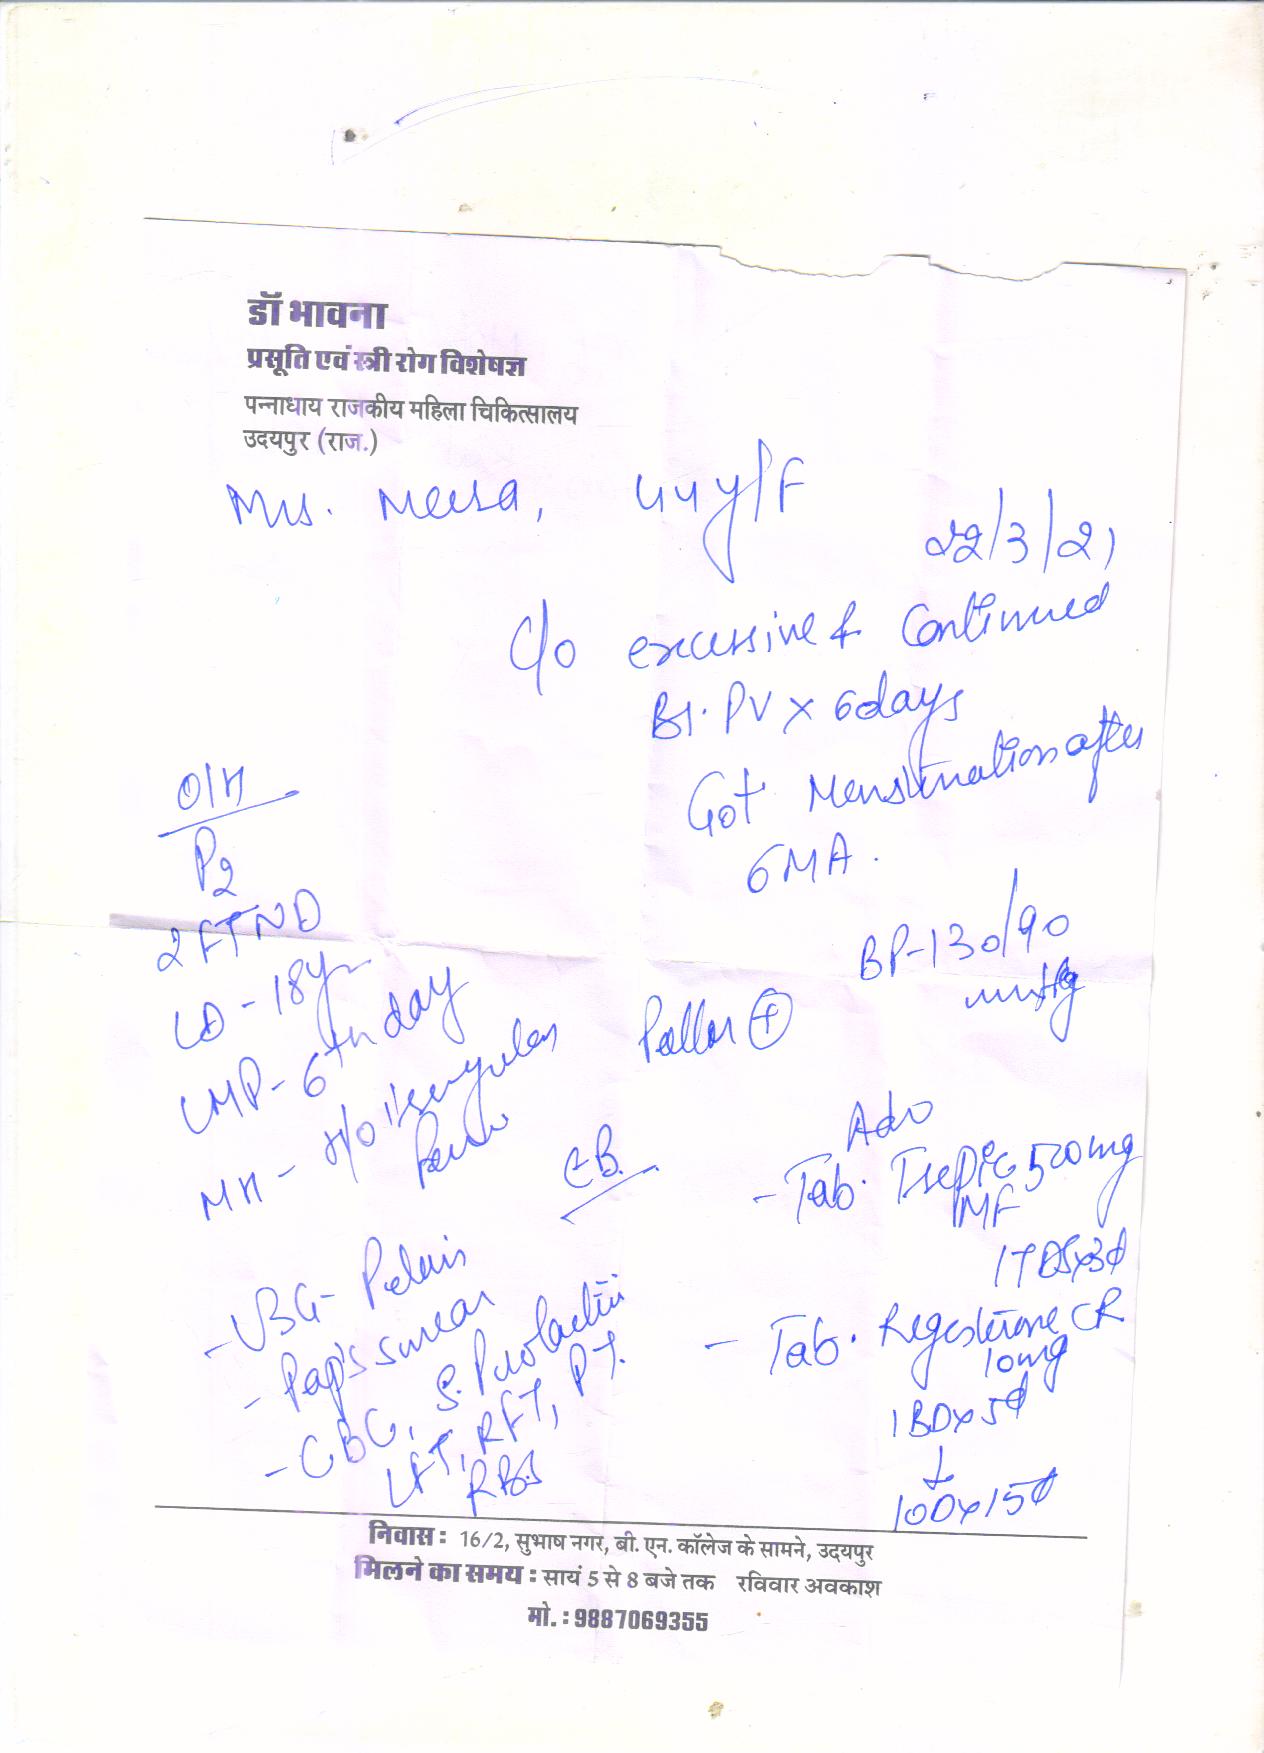 डॉ भावना
प्रसूति एवं स्त्री रोग विशेषज्ञ
पन्नाधाय राजकीय महिला चिकित्सालय
उदयपुर (राज.)
Mrs. Meera, 44y/F
22/3/21
C/o excessive & Continued
Bl. PV x 6days
Got Menstruation after
6MA.
O/H
P2
2FTND
LD - 18yr
LMP - 6th day
MH - H/o irregular
BP - 130/90
mmHg
Pallor +
Adv
- Tab. 500mg
MF
1TDS x 3d
- Tab. Regesterone CR
10mg
1BD x 5d
↓
1OD x 15d
- USG - Pelvis
- Pap's smear
- CBC, S. Prolactin
LFT, RFT, PT.
RBS
निवास : 16/2, सुभाष नगर, बी. एन. कॉलेज के सामने, उदयपुर
मिलने का समय : सायं 5 से 8 बजे तक रविवार अवकाश
मो. : 9887069355